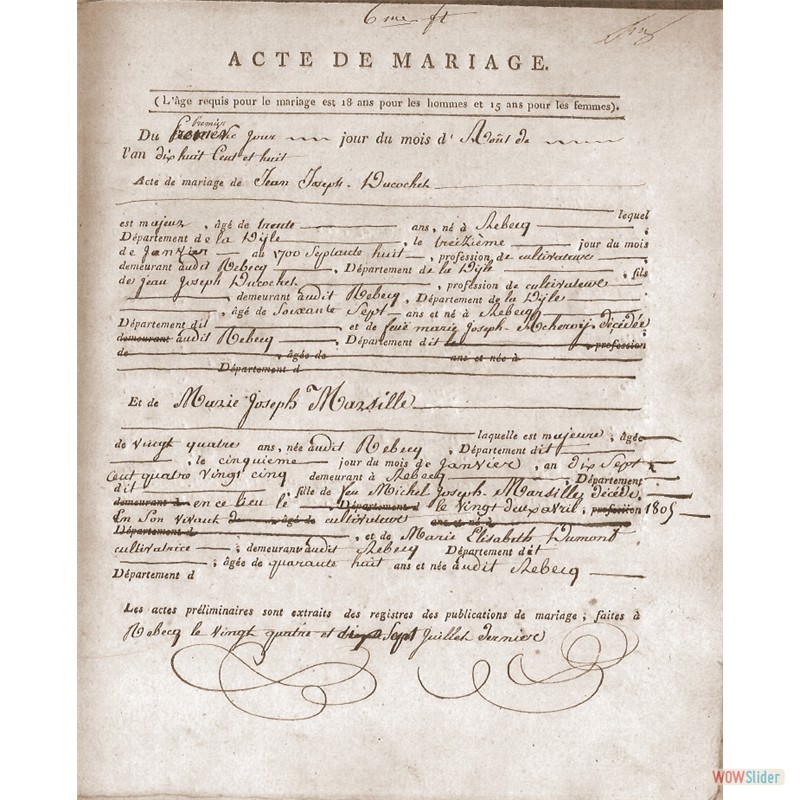 6 me ft
ACTE DE MARIAGE.
(L'âge requis pour le mariage est 18 ans pour les hommes et 15 ans pour les femmes).
premier
Du jour jour du mois d' Août de
l'an dix huit Cent et huit
Acte de mariage de Jean Joseph Ducochet
lequel
est majeur, âgé de trente ans, né à Rebecq
Département de la Dyle, le treizième jour du mois
de Janvier au 1700 Septante huit, profession de cultivateur
demeurant audit Rebecq, Département de la Dyle, fils
de Jean Joseph Ducochet, profession de cultivateur
, demeurant audit Rebecq, Département de la Dyle
, âgé de Soixante Sept ans et né à Rebecq
Département dit et de feue marie Joseph décédée
demeurant audit Rebecq, Département dit le, profession
de, âgée de ans et née à
Département d
Et de Marie Joseph Marsille
laquelle est majeure, âgée
de vingt quatre ans, née audit Rebecq, Département dit
, le cinquieme jour du mois de Janvier, an dix Sept
Cent quatre vingt cinq demeurant à Rebecq, Département
dit, fille de feu Michel Joseph Marsille, décédé
demeurant d en ce lieu le, Département d le vingt deux avril, profession 1805
En Son vivant de, âgé de cultivateur ans et né à
Département d, et de Marie Elisabeth Dumont
cultivatrice, demeurant audit Rebecq Département dit
, âgée de quarante huit ans et née audit Rebecq
Département d
Les actes préliminaires sont extraits des registres des publications de mariage, faites à
Rebecq le vingt quatre et Sept Juillet dernier
WOWSlider